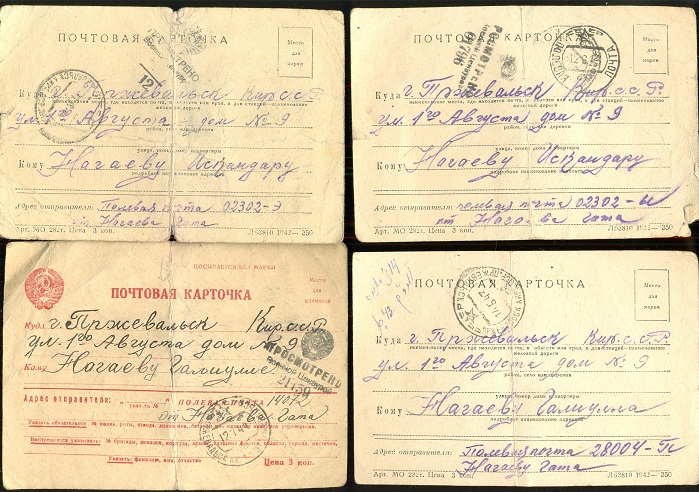 ПОЧТОВАЯ КАРТОЧКА
Место
для
марки
ПРОСМОТРЕНО
12
Куда г. Пржевальск Кир.с.с.р.
ул. 1го Августа дом № 9
район, село или деревня
улица, номер дома и квартиры
Кому Нагаеву Искандару
подробное наименование адресата
Адрес отправителя: Полевая почта 02302-Э
от Нагаева Гата
Арт. МО 282т. Цена 3 коп.
Л63810 1942—350
ПОЧТОВАЯ КАРТОЧКА
Место
для
марки
ПРОСМОТРЕНО
Военной Цензурой
01796
Куда г. Пржевальск Кир.с.с.Р.
наименование места, где находится почта, и области или края, а для станций—наименование
железной дороги
ул. 1го Августа дом № 9
район, село или деревня
улица, номер дома и квартиры
Кому Нагаеву Искандару
подробное наименование адресата
Адрес отправителя: полевая почта 02302-ы
от Нагаева Гата
Арт. МО 282т. Цена 3 коп.
Л63810 1942—350
ПОСЫЛАЕТСЯ БЕЗ МАРКИ
ПОЧТОВАЯ КАРТОЧКА
Место
для
штемпеля
Куда г. Пржевальск Кир.с.с.Р.
ул. 1го Августа дом № 9
Кому Нагаеву Галиулле
ПРОСМОТРЕНО
Военной Цензурой
21159
Адрес отправителя: указать № ПОЛЕВАЯ ПОЧТА 14012
от Нагаева Гата
Указать фамилию, имя, отчество
Цена 3 коп.
ПОЧТОВАЯ КАРТОЧКА
Место
для
марки
Куда г. Пржевальск Кир.с.с.Р.
наименование места, где находится почта, и области или края, а для станций—наименование
железной дороги
ул. 1го Августа дом № 9
район, село или деревня
улица, номер дома и квартиры
Кому Нагаева Галиулла
подробное наименование адресата
Адрес отправителя: Полевая почта 28004-П
Нагаеву Гата
Арт. МО 282т. Цена 3 коп.
Л63810 1942—350